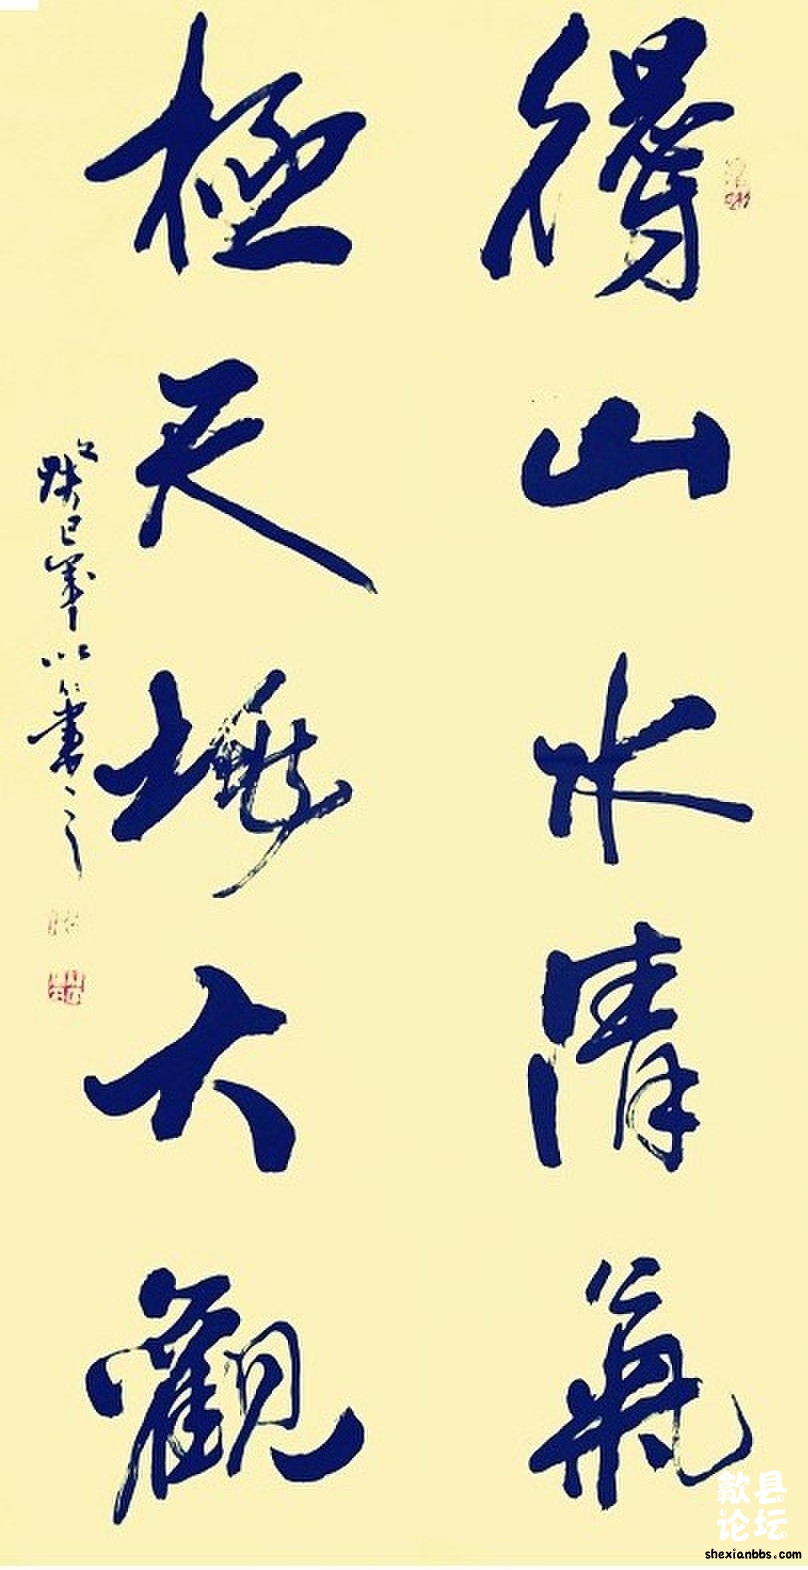 得山水清氣
極天地大觀
癸巳年以仁書之
歙县
论坛
shexianbbs.com